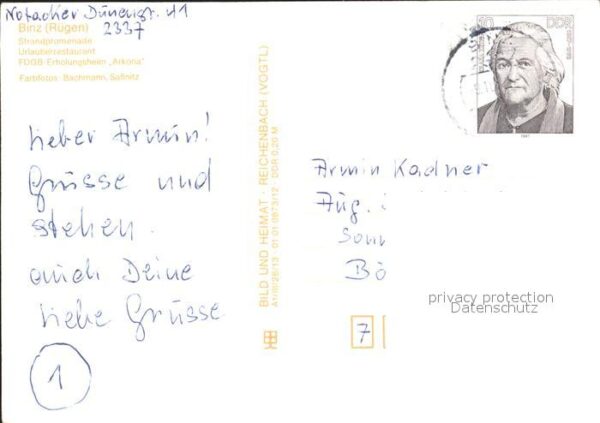 Notacker Dünenstr. 41
2337
Binz (Rügen)
Strandpromenade
Urlauberrestaurant
FDGB-Erholungsheim „Arkona"
Farbfotos: Bachmann, Saßnitz
lieber Armin!
Grüsse und
stehen.
auch Deine
liebe Grüsse
1
BILD UND HEIMAT · REICHENBACH (VOGTL)
A1/III/26/13 · 01 01 0873/12 · DDR 0,20 M
10
DDR
Armin Kadner
Aug.
Bö
7
privacy protection
Datenschutz